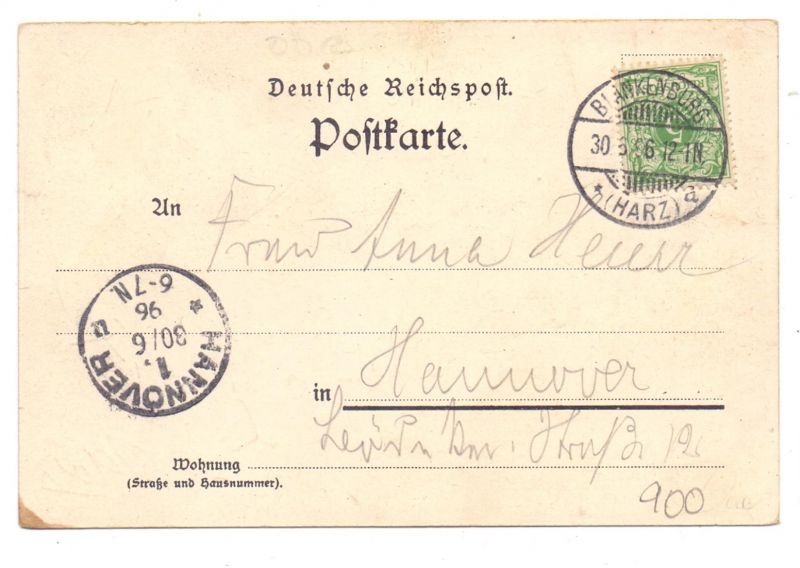 Deutsche Reichspost.
Postkarte.
BLANKENBURG
30.6.96.12-1N.
* (HARZ) a
5
An Frau Anna
HANNOVER
1.
30/6
96
6-7N.
*
in Hannover
Straße 12
Wohnung
(Straße und Hausnummer).
900